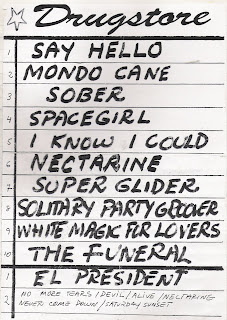 Drugstore
1 SAY HELLO
2 MONDO CANE
3 SOBER
4 SPACEGIRL
5 I KNOW I COULD
6 NECTARINE
7 SUPER GLIDER
8 SOLITARY PARTY GROOVER
9 WHITE MAGIC FOR LOVERS
10 THE FUNERAL
1 EL PRESIDENT
2 NO MORE TEARS / DEVIL / ALIVE / NECTARINE
NEVER COME DOWN / SATURDAY SUNSET